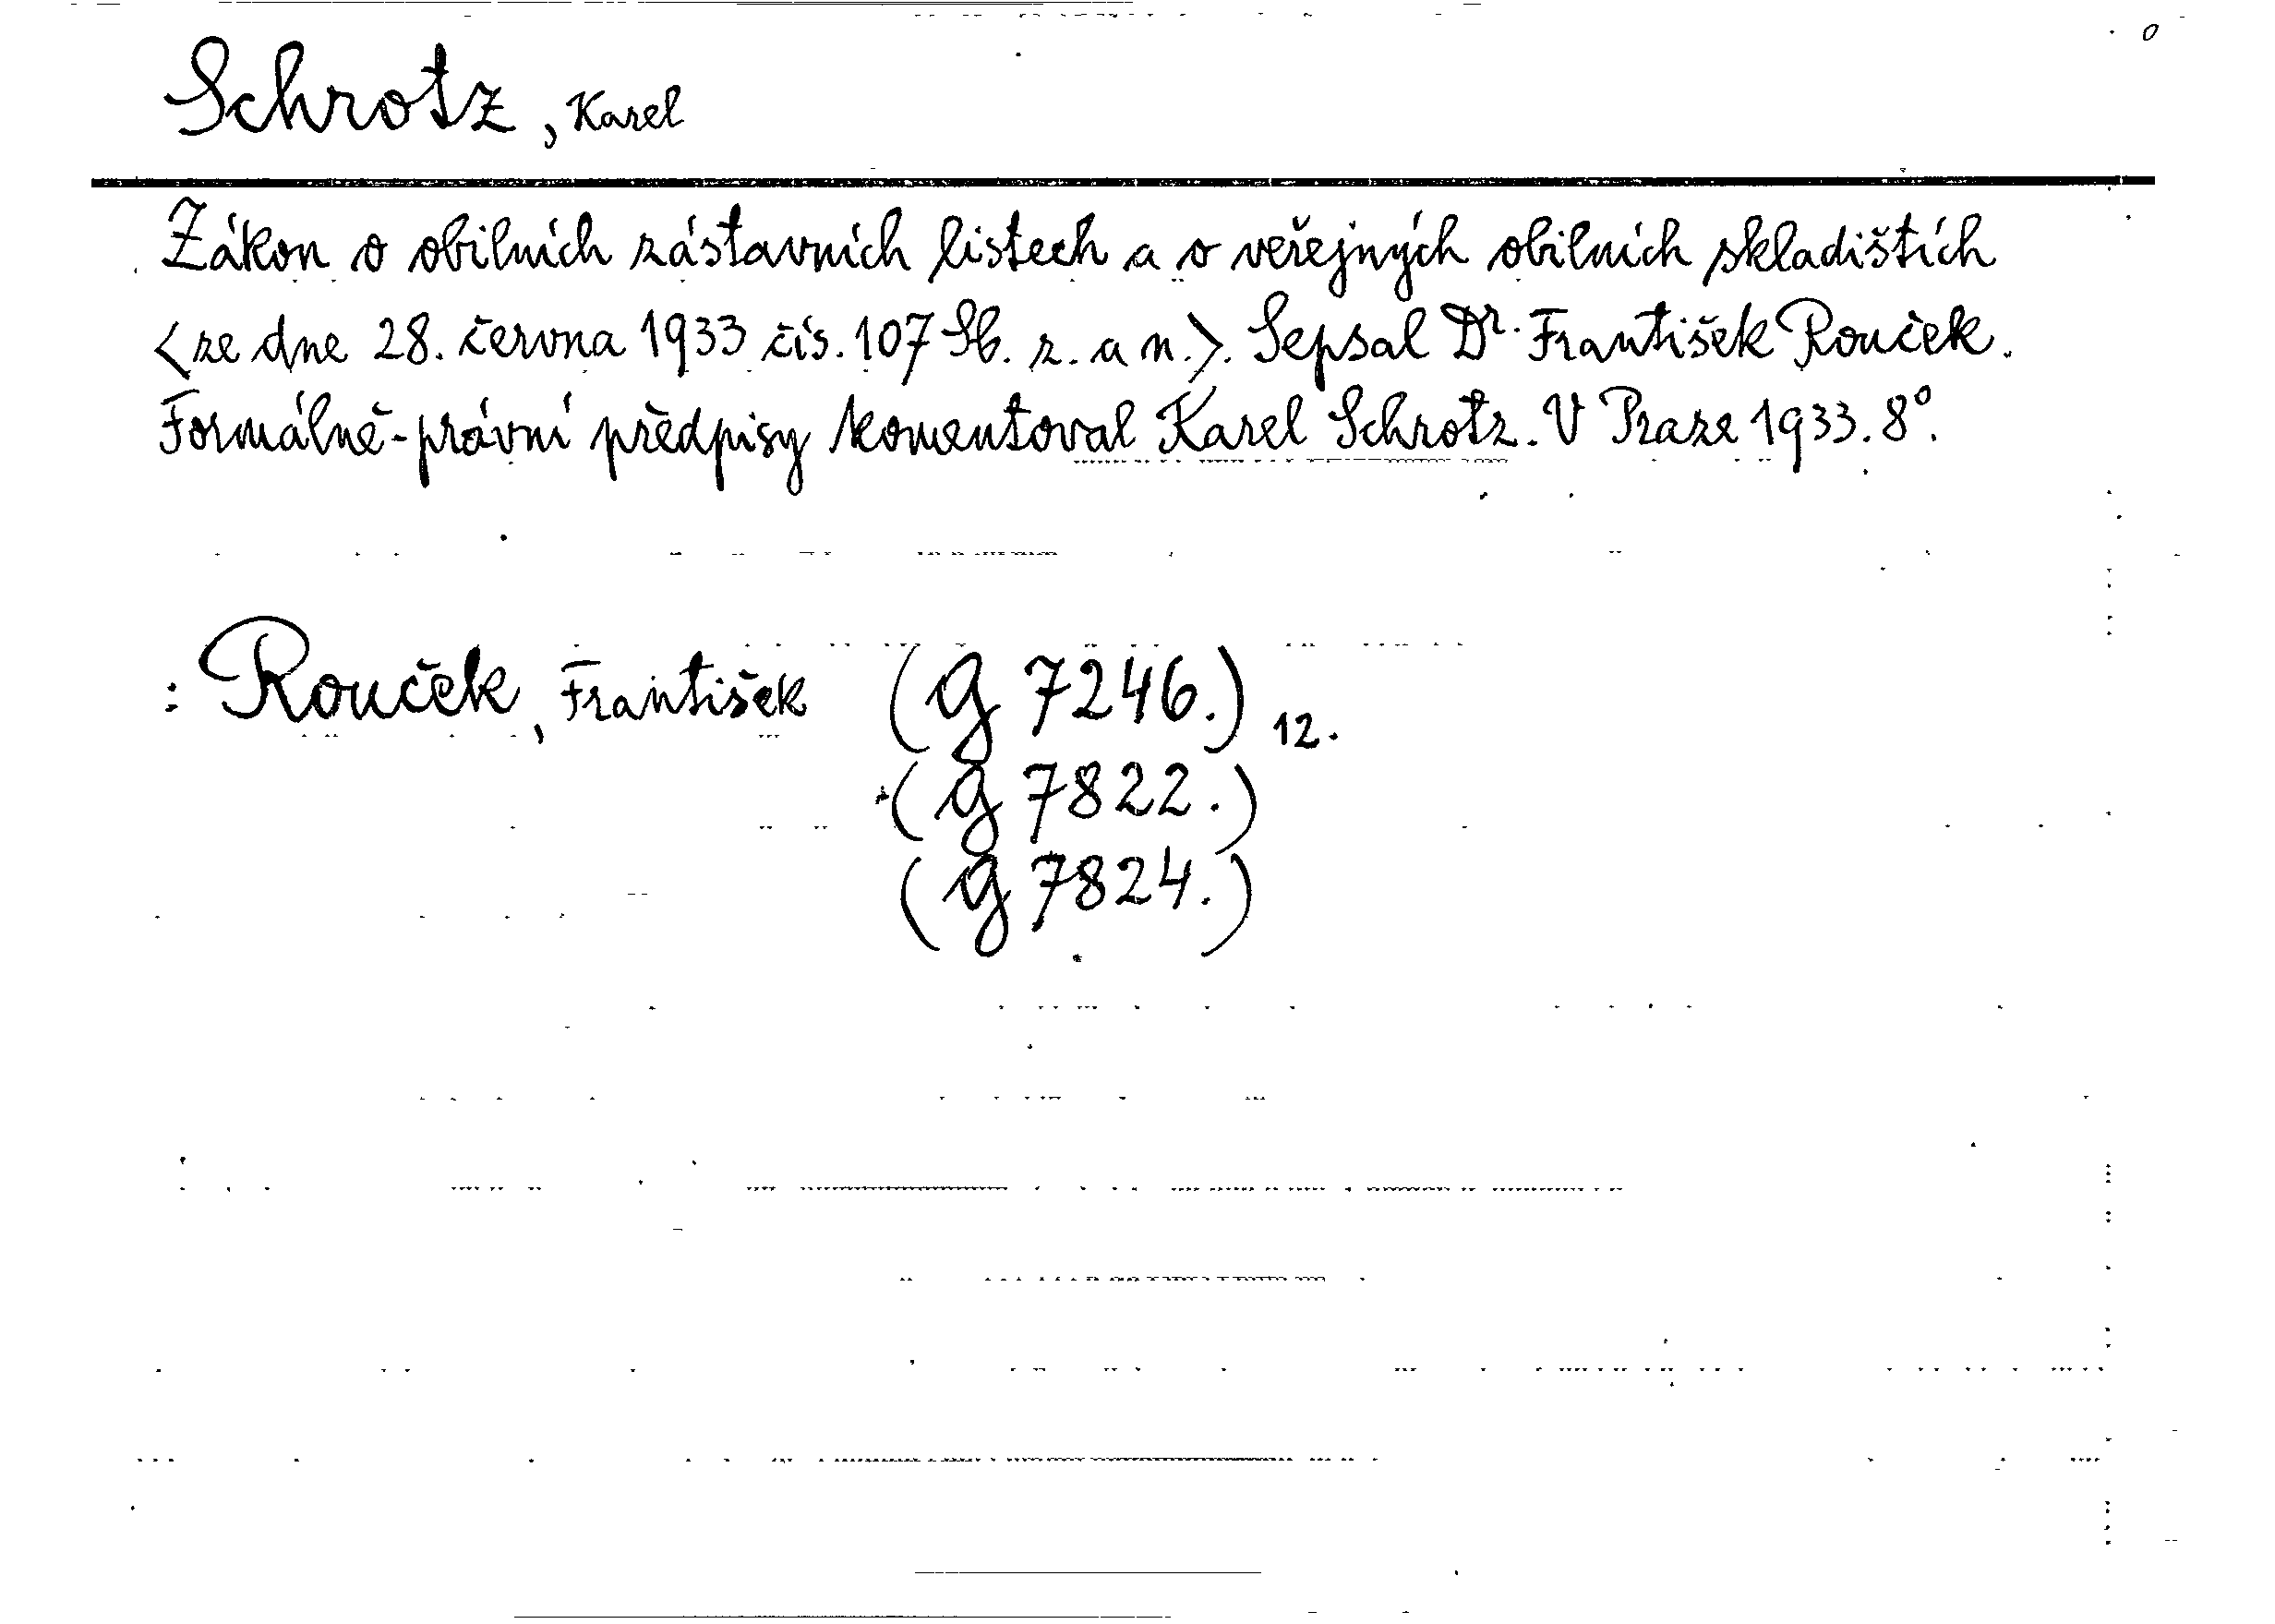 Schrotz, Karel
Zákon o obilních zástavních listech a o veřejných obilních skladištích
<ze dne 28. června 1933 čís. 107 Sb. z. a n.>. Sepsal Dr. František Rouček.
Formálně-právní předpisy komentoval Karel Schrotz. V Praze 1933. 8°.
: Rouček, František (g 7246.) 12.
(g 7822.)
(g 7824.)